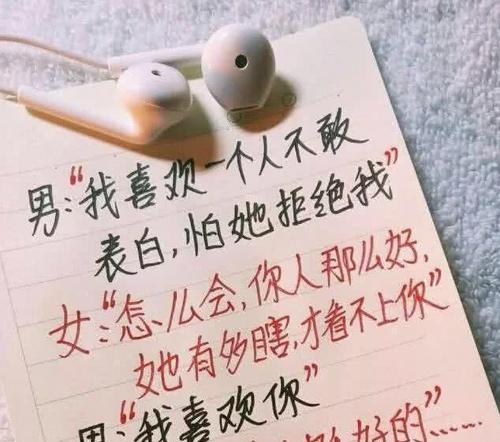 男:“我喜欢一个人不敢
表白,怕她拒绝我”
女:“怎么会,你人那么好,
她有多瞎,才看不上你”
男:“我喜欢你”
好的”......